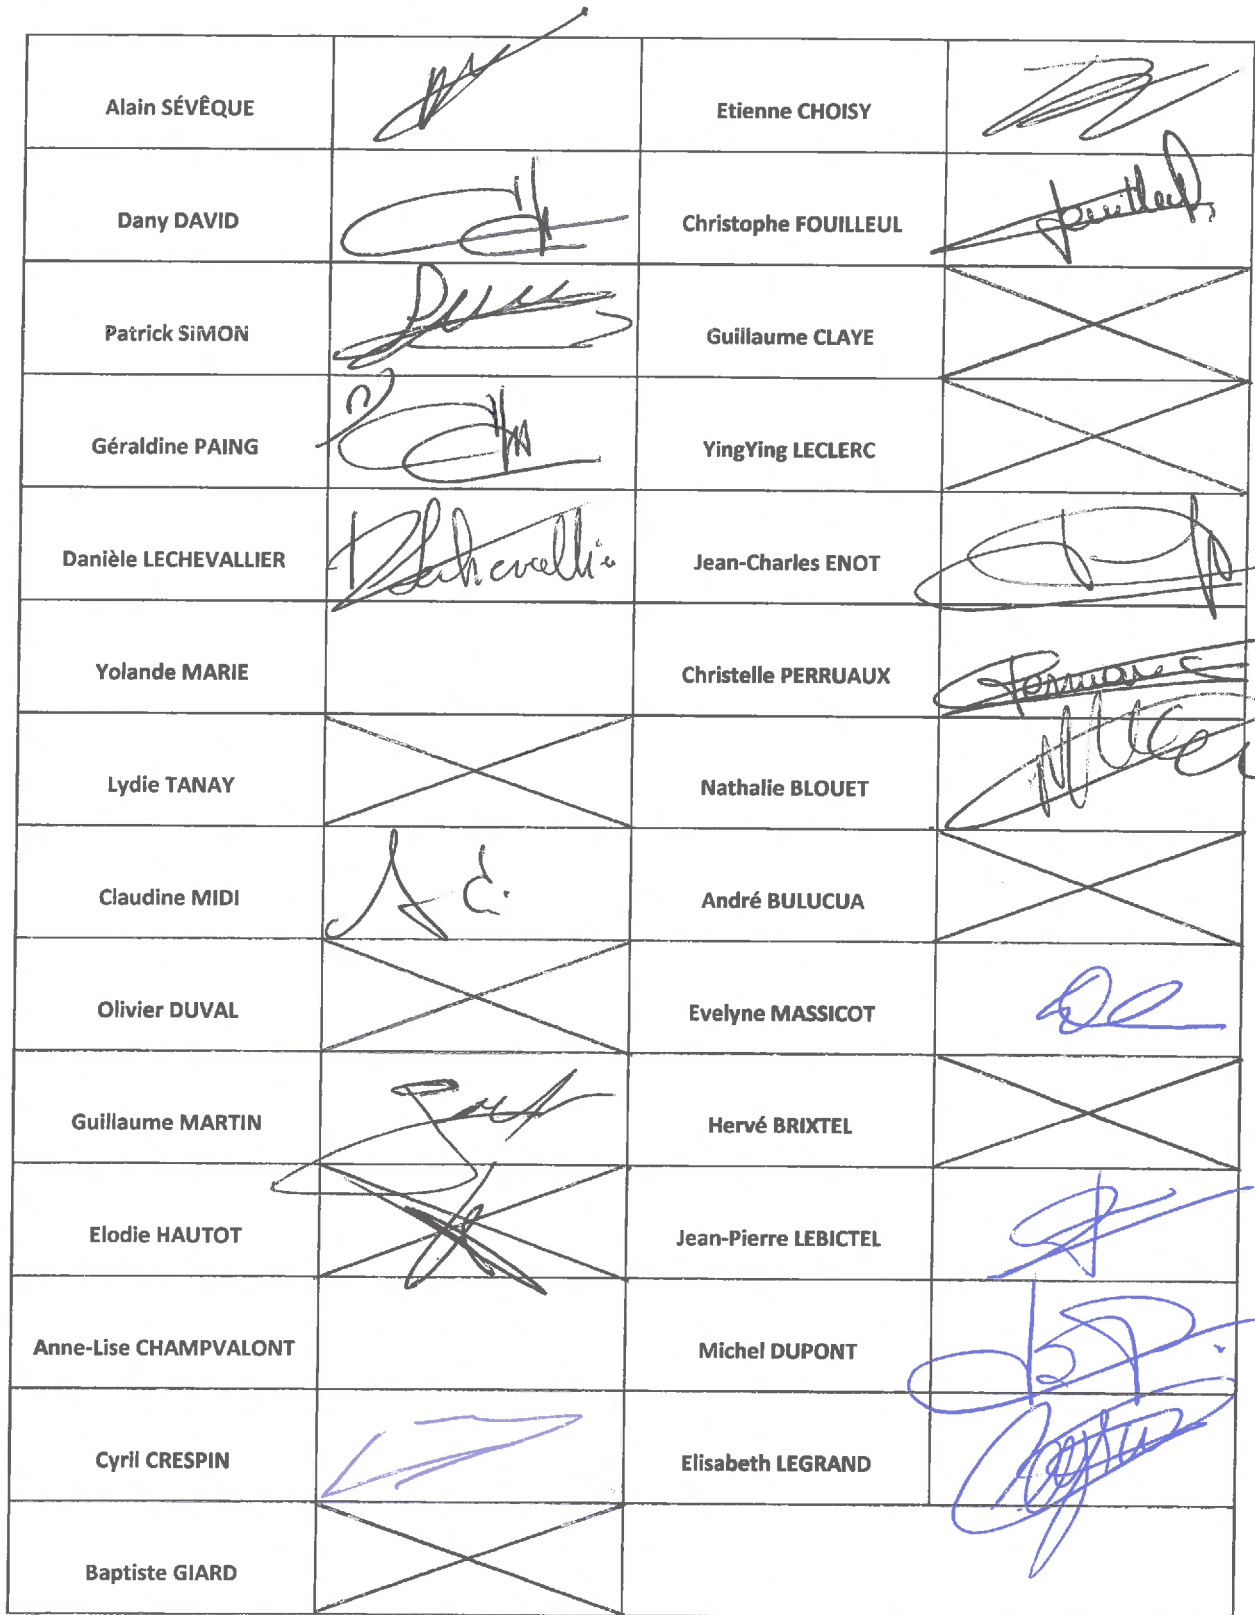 Alain SÉVÊQUE
Etienne CHOISY
Dany DAVID
Christophe FOUILLEUL
Patrick SiMON
Guillaume CLAYE
Géraldine PAING
YingYing LECLERC
Danièle LECHEVALLIER
Jean-Charles ENOT
Yolande MARIE
Christelle PERRUAUX
Lydie TANAY
Nathalie BLOUET
Claudine MIDI
André BULUCUA
Olivier DUVAL
Evelyne MASSICOT
Guillaume MARTIN
Hervé BRIXTEL
Elodie HAUTOT
Jean-Pierre LEBICTEL
Anne-Lise CHAMPVALONT
Michel DUPONT
Cyril CRESPIN
Elisabeth LEGRAND
Baptiste GIARD